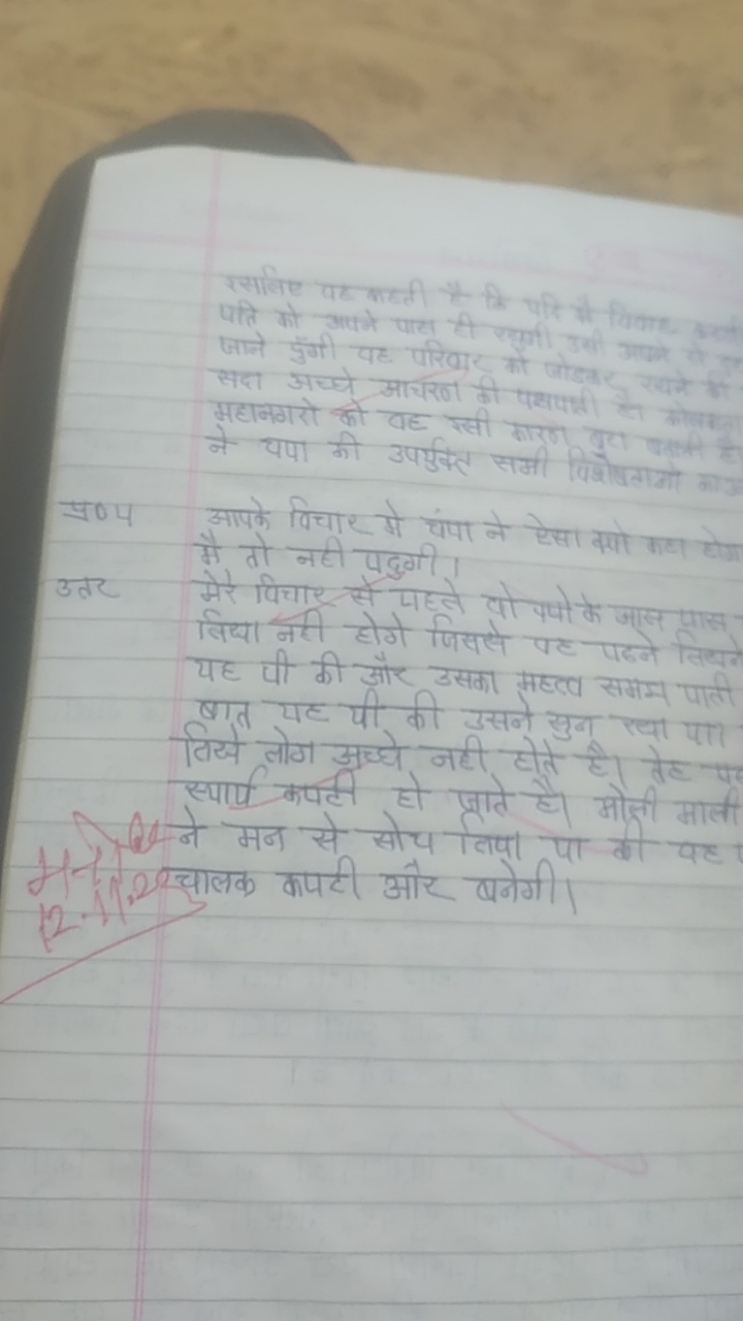 इसलिए वह कहती है कि यदि मै विवाह करूगी
पति को अपने पास ही रखूगी उसे अपने से दूर
जाने दुँगी वह परिवार को जोडकर रखने की
सदा अच्छे आचरण की पक्षपाती है। कोलकता
महानगरो को वह इसी कारण बुरा बताती है।
ने चंपा की उपर्युक्त सभी विशेषताओ का
प्र०५ आपके विचार मे चंपा ने ऐसा क्यो कहा होगा
मै तो नही पढुगी।
उतर मेरे विचार से पहले तो चंपा के आस पास
लिखा नही होगे जिससे वह पढने लिखने
यह थी की और उसका महत्व समझ पाती
बात यह थी की उसने सुन रखा था।
लिखे लोग अच्छे नही होते है। वह
स्वार्थ कपटी हो जाते है। भोली भाली
ने मन से सोच लिया था की वह
चालक कपटी और बनेगी।
12.11.22